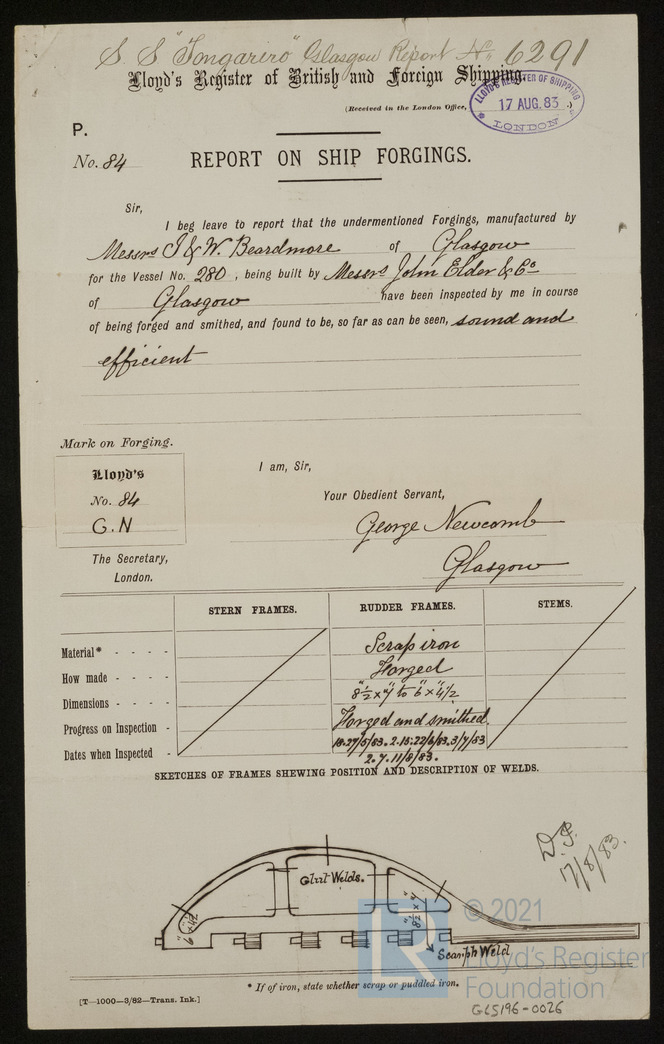 S. S "Tongariro" Glasgow Report No 6291
Lloyd's Register of British and Foreign Shipping.
(Received in the London Office, .)
LLOYD'S REGISTER OF SHIPPING
17 AUG. 83
LONDON
P.
No. 84
REPORT ON SHIP FORGINGS.
Sir,
I beg leave to report that the undermentioned Forgings, manufactured by
Messrs I & W. Beardmore of Glasgow
for the Vessel No. 280, being built by Messrs John Elder & Co
of Glasgow have been inspected by me in course
of being forged and smithed, and found to be, so far as can be seen, sound and
efficient
Mark on Forging.
Lloyd's
No. 84
G.N
I am, Sir,
Your Obedient Servant,
George Newcomb
Glasgow
The Secretary,
London.
STERN FRAMES. RUDDER FRAMES. STEMS.
Material* - - - - Scrap iron
How made - - - - Forged
Dimensions - - - - 8½" x 7" to 6" x 4½"
Progress on Inspection - Forged and smithed
Dates when Inspected - 18.27/5/83. 2.15.22/6/83. 3/7/83
2.7.11/8/83.
SKETCHES OF FRAMES SHEWING POSITION AND DESCRIPTION OF WELDS.
17/8/83.
Glut Welds.
Scarph Weld
LR
© 2021
Lloyd's Register
Foundation
* If of iron, state whether scrap or puddled iron.
[T—1000—3/82—Trans. Ink.]
GLS196-0026